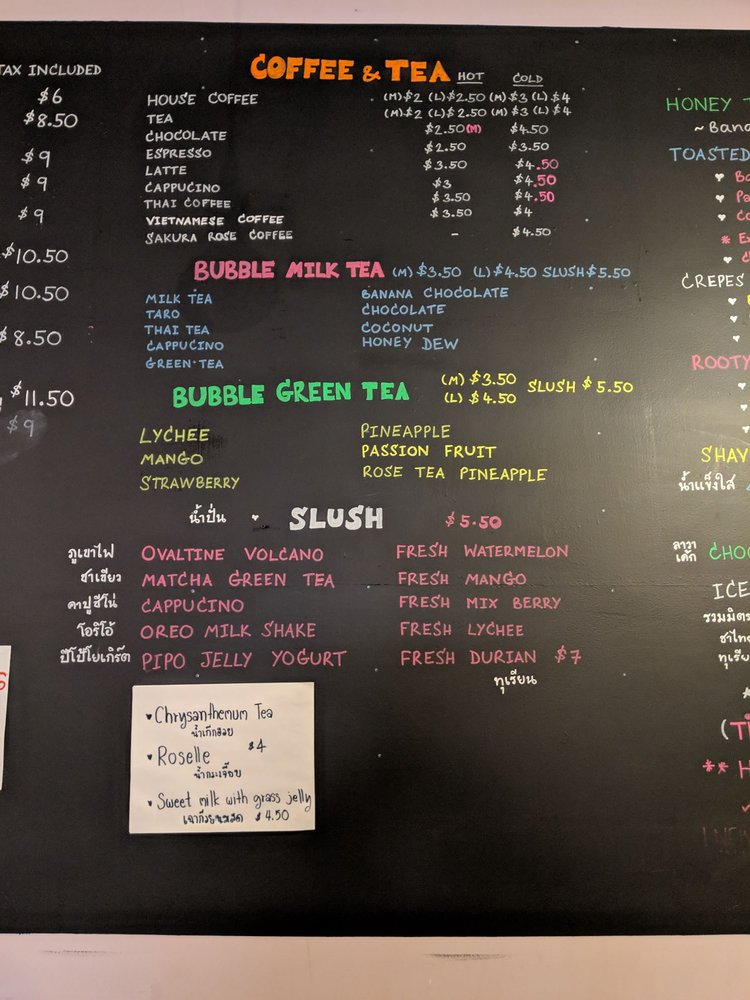 TAX INCLUDED
$6
$8.50
$9
$9
$9
$10.50
$10.50
$8.50
$11.50
$9
COFFEE & TEA HOT COLD
HOUSE COFFEE (M)$2 (L)$2.50 (M)$3 (L)$4
TEA (M)$2 (L)$2.50 (M)$3 (L)$4
CHOCOLATE $2.50(M) $4.50
ESPRESSO $2.50 $3.50
LATTE $3.50 $4.50
CAPPUCINO $3 $4.50
THAI COFFEE $3.50 $4.50
VIETNAMESE COFFEE $3.50 $4
SAKURA ROSE COFFEE - $4.50
BUBBLE MILK TEA (M)$3.50 (L)$4.50 SLUSH $5.50
MILK TEA BANANA CHOCOLATE
TARO CHOCOLATE
THAI TEA COCONUT
CAPPUCINO HONEY DEW
GREEN TEA
BUBBLE GREEN TEA (M)$3.50 SLUSH $5.50
(L)$4.50
LYCHEE PINEAPPLE
MANGO PASSION FRUIT
STRAWBERRY ROSE TEA PINEAPPLE
น้ำปั่น ♥ SLUSH $5.50
ภูเขาไฟ OVALTINE VOLCANO FRESH WATERMELON
ชาเขียว MATCHA GREEN TEA FRESH MANGO
คาปูชิโน่ CAPPUCINO FRESH MIX BERRY
โอริโอ้ OREO MILK SHAKE FRESH LYCHEE
ปีโป้โยเกิร์ต PIPO JELLY YOGURT FRESH DURIAN $7
ทุเรียน
♥ Chrysanthemum Tea
น้ำเก๊กฮวย
♥ Roselle $4
น้ำกระเจี๊ยบ
♥ Sweet milk with grass jelly
$4.50
HONEY T
~Bana
TOASTED
♥ Pe
CREPES
ROOTY
SHAV
น้ำแข็งใส
ลาวา
เค้ก CHOC
ICE
รวมมิตร
ชาไทย
ทุเรีย
(T
** H